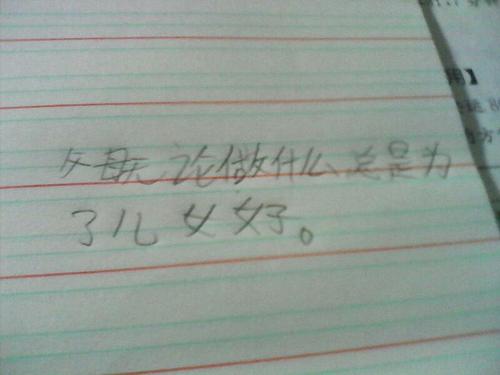 父母无论做什么总是为
了儿女好。
用】